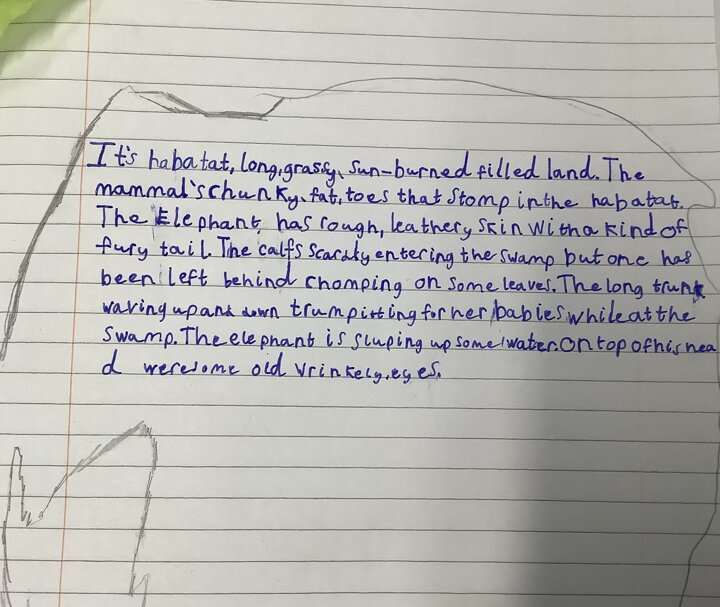 It's habatat, long, grassy, sun-burned filled land. The
mammal's chunky, fat, toes that stomp in the habatat.
The Elephant, has rough, leathery skin with a kind of
fury tail. The calfs scarcly entering the swamp but one has
been left behind chomping on some leaves. The long trunk
waving up and down trumpitting for her babies while at the
swamp. The elephant is sluping up some water. On top of his hea
d were some old vrinkely, eyes.